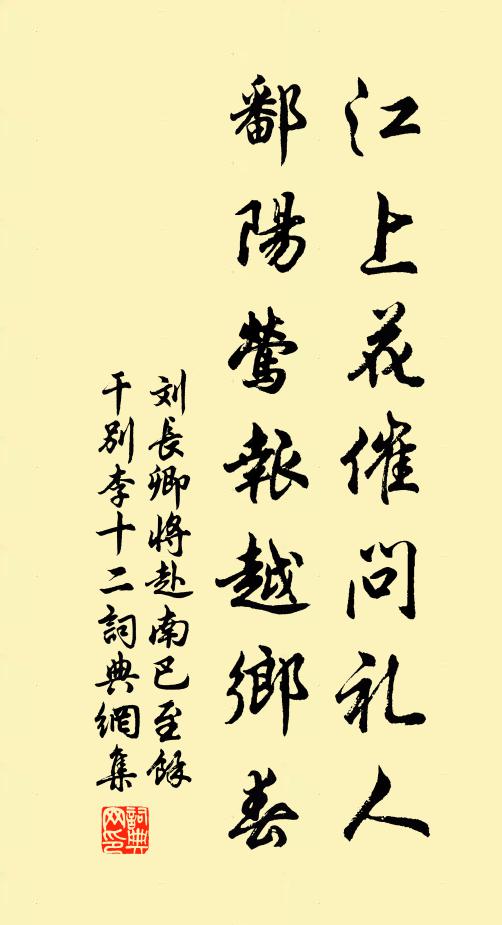 江上花催问礼人
鄱陽莺報越鄉春
刘長卿将赴南巴至餘
干别李十二詞典網集
詞典網印